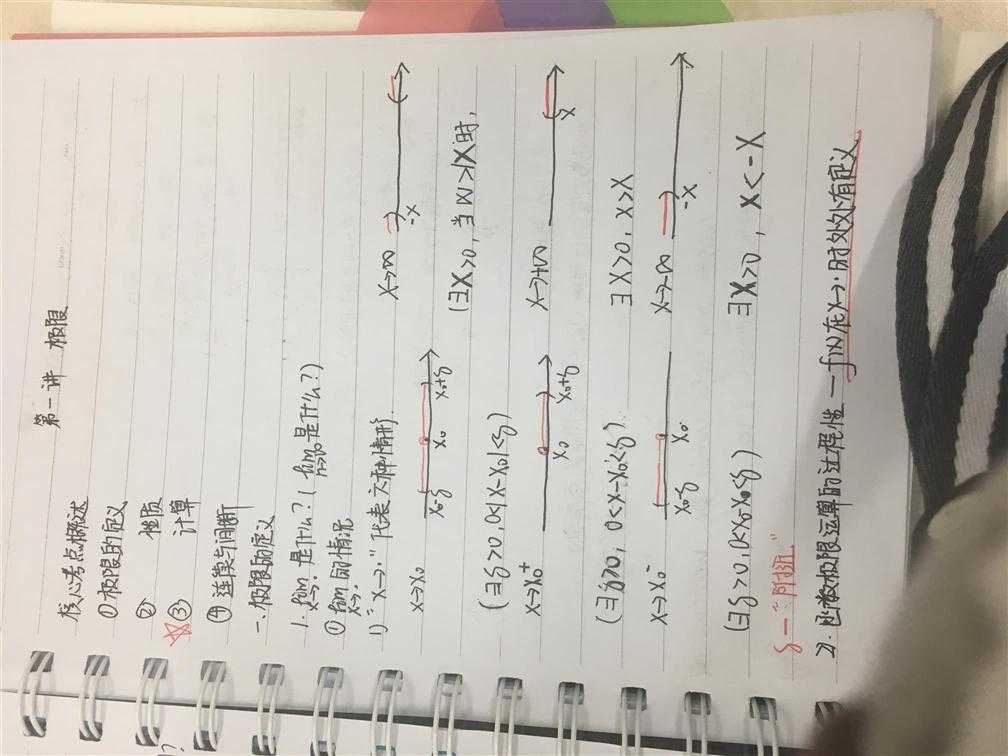 第一讲 极限
核心考点概述
①极限的定义
② 性质
☆③ 计算
④连续与间断
一.极限的定义
1. lim x→· 是什么?( lim n→∞ 是什么?)
① lim x→· 的情况
1)"x→·"代表六种情形.
x→x₀ x₀-δ x₀ x₀+δ x→∞ -X
(∃δ>0,0<|x-x₀|<δ) (∃X>0,当|x|>X时,
x→x₀⁺ x₀ x₀+δ x→+∞ X
(∃δ>0, 0<x-x₀<δ). ∃X>0, x>X
x→x₀⁻ x₀-δ x₀ x→-∞ -X
(∃δ>0,0<x₀-x<δ) ∃X>0, x<-X
δ—"附近"
2). 函数极限运算的过程性 — f(x)在x→·时处处有定义